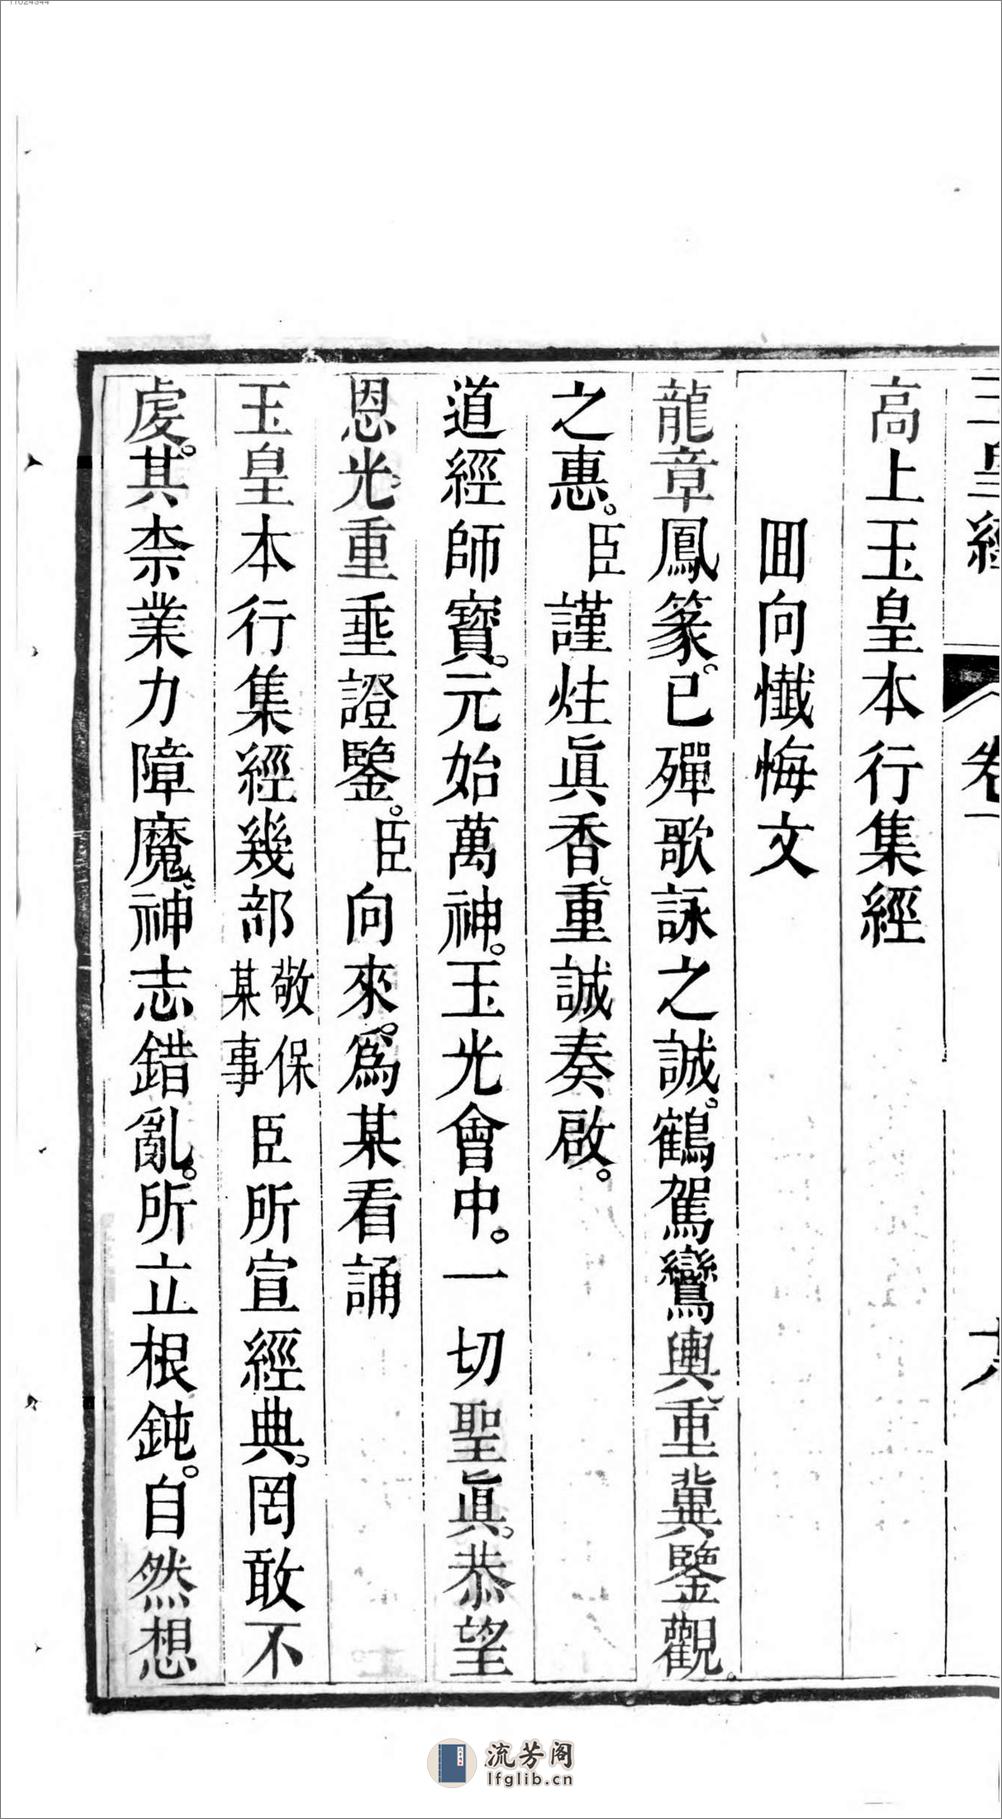 11024344
玉皇經 卷一
高上玉皇本行集經
囬向懴悔文
龍章鳳篆。已殫歌詠之誠。鶴駕鸞輿。重冀鑒觀。
之惠。臣謹炷眞香。重誠奏啟。
道經師寳。元始萬神。玉光會中。一切聖眞。恭望
恩光。重垂證鑒。臣向來。爲某看誦
玉皇本行集經幾部敬保某事臣所宣經典。罔敢不
虔。其柰業力障魔。神志錯亂。所立根鈍。自然想
流芳阁
lfglib.cn